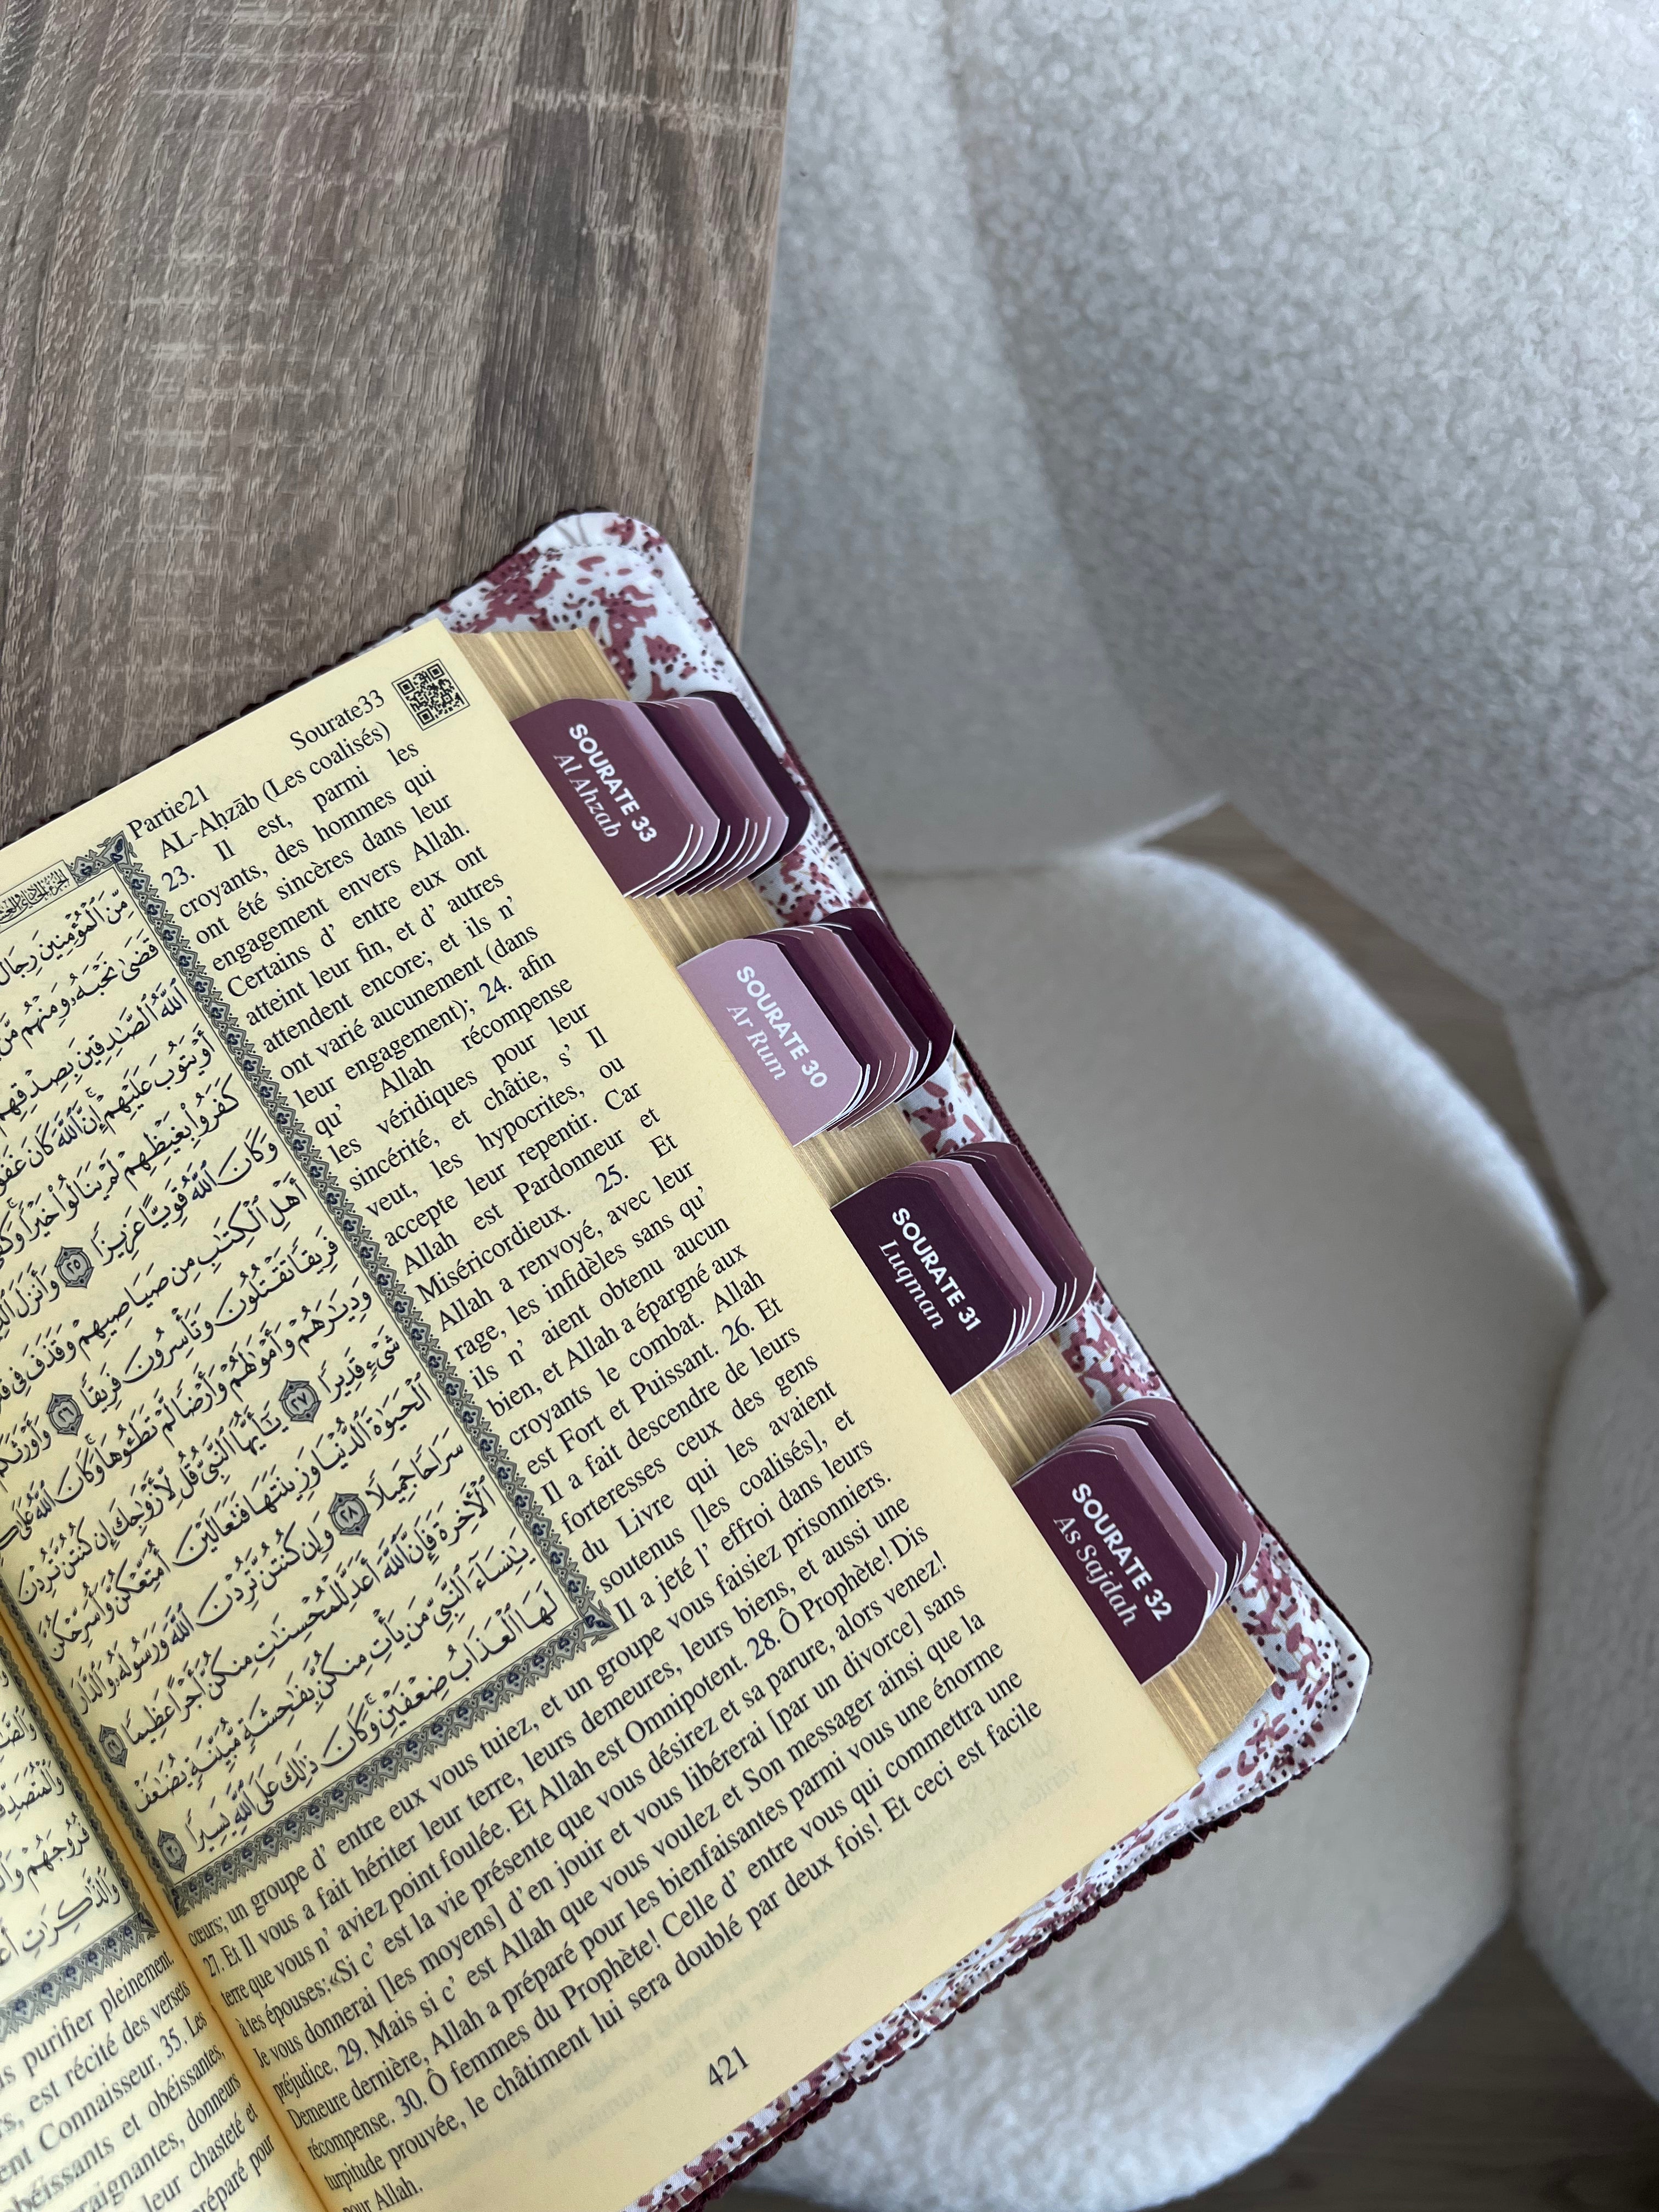 Partie21
Sourate33
AL-Aḥzāb (Les coalisés)
23. Il est, parmi les
croyants, des hommes qui
ont été sincères dans leur
engagement envers Allah.
Certains d’ entre eux ont
atteint leur fin, et d’ autres
attendent encore; et ils n’
ont varié aucunement (dans
leur engagement); 24. afin
qu’ Allah récompense
les véridiques pour leur
sincérité, et châtie, s’ Il
veut, les hypocrites, ou
accepte leur repentir. Car
Allah est Pardonneur et
Miséricordieux. 25. Et
Allah a renvoyé, avec leur
rage, les infidèles sans qu’
ils n’ aient obtenu aucun
bien, et Allah a épargné aux
croyants le combat. Allah
est Fort et Puissant. 26. Et
Il a fait descendre de leurs
forteresses ceux des gens
du Livre qui les avaient
soutenus [les coalisés], et
Il a jeté l’ effroi dans leurs
cœurs; un groupe d’ entre eux vous tuiez, et un groupe vous faisiez prisonniers.
27. Et Il vous a fait hériter leur terre, leurs demeures, leurs biens, et aussi une
terre que vous n’ aviez point foulée. Et Allah est Omnipotent. 28. Ô Prophète! Dis
à tes épouses:«Si c’ est la vie présente que vous désirez et sa parure, alors venez!
Je vous donnerai [les moyens] d’en jouir et vous libérerai [par un divorce] sans
préjudice. 29. Mais si c’ est Allah que vous voulez et Son messager ainsi que la
Demeure dernière, Allah a préparé pour les bienfaisantes parmi vous une énorme
récompense. 30. Ô femmes du Prophète! Celle d’ entre vous qui commettra une
turpitude prouvée, le châtiment lui sera doublé par deux fois! Et ceci est facile
pour Allah.
421
مِّنَ ٱلْمُؤْمِنِينَ رِجَالٌ
قَضَىٰ نَحْبَهُۥ وَمِنْهُم مَّن
ٱللَّهُ ٱلصَّٰدِقِينَ بِصِدْقِهِمْ
أَوْ يَتُوبَ عَلَيْهِمْ ۚ إِنَّ ٱللَّهَ كَانَ
كَفَرُوا۟ بِغَيْظِهِمْ لَمْ يَنَالُوا۟ خَيْرًا ۚ
وَكَانَ ٱللَّهُ قَوِيًّا عَزِيزًا ٢٥ وَأَنزَلَ
أَهْلِ ٱلْكِتَٰبِ مِن صَيَاصِيهِمْ وَقَذَفَ فِى
فَرِيقًا تَقْتُلُونَ وَتَأْسِرُونَ فَرِيقًا ٢٦ وَأَوْرَثَكُمْ
وَدِيَٰرَهُمْ وَأَمْوَٰلَهُمْ وَأَرْضًا لَّمْ تَطَـُٔوهَا ۚ وَكَانَ ٱللَّهُ عَلَىٰ
شَىْءٍ قَدِيرًا ٢٧ يَٰٓأَيُّهَا ٱلنَّبِىُّ قُل لِّأَزْوَٰجِكَ إِن كُنتُنَّ تُرِدْنَ
ٱلْحَيَوٰةَ ٱلدُّنْيَا وَزِينَتَهَا فَتَعَالَيْنَ أُمَتِّعْكُنَّ وَأُسَرِّحْكُنَّ
سَرَاحًا جَمِيلًا ٢٨ وَإِن كُنتُنَّ تُرِدْنَ ٱللَّهَ وَرَسُولَهُۥ وَٱلدَّارَ
ٱلْـَٔاخِرَةَ فَإِنَّ ٱللَّهَ أَعَدَّ لِلْمُحْسِنَٰتِ مِنكُنَّ أَجْرًا عَظِيمًا ٢٩
يَٰنِسَآءَ ٱلنَّبِىِّ مَن يَأْتِ مِنكُنَّ بِفَٰحِشَةٍ مُّبَيِّنَةٍ يُضَٰعَفْ
لَهَا ٱلْعَذَابُ ضِعْفَيْنِ ۚ وَكَانَ ذَٰلِكَ عَلَى ٱللَّهِ يَسِيرًا ٣٠
purifier pleinement.
est récité des versets
Connaisseur. 35. Les
et obéissantes,
donneurs
leur chasteté et
pour
SOURATE 33
Al Ahzab
SOURATE 30
Ar Rum
SOURATE 31
Luqman
SOURATE 32
As Sajdah